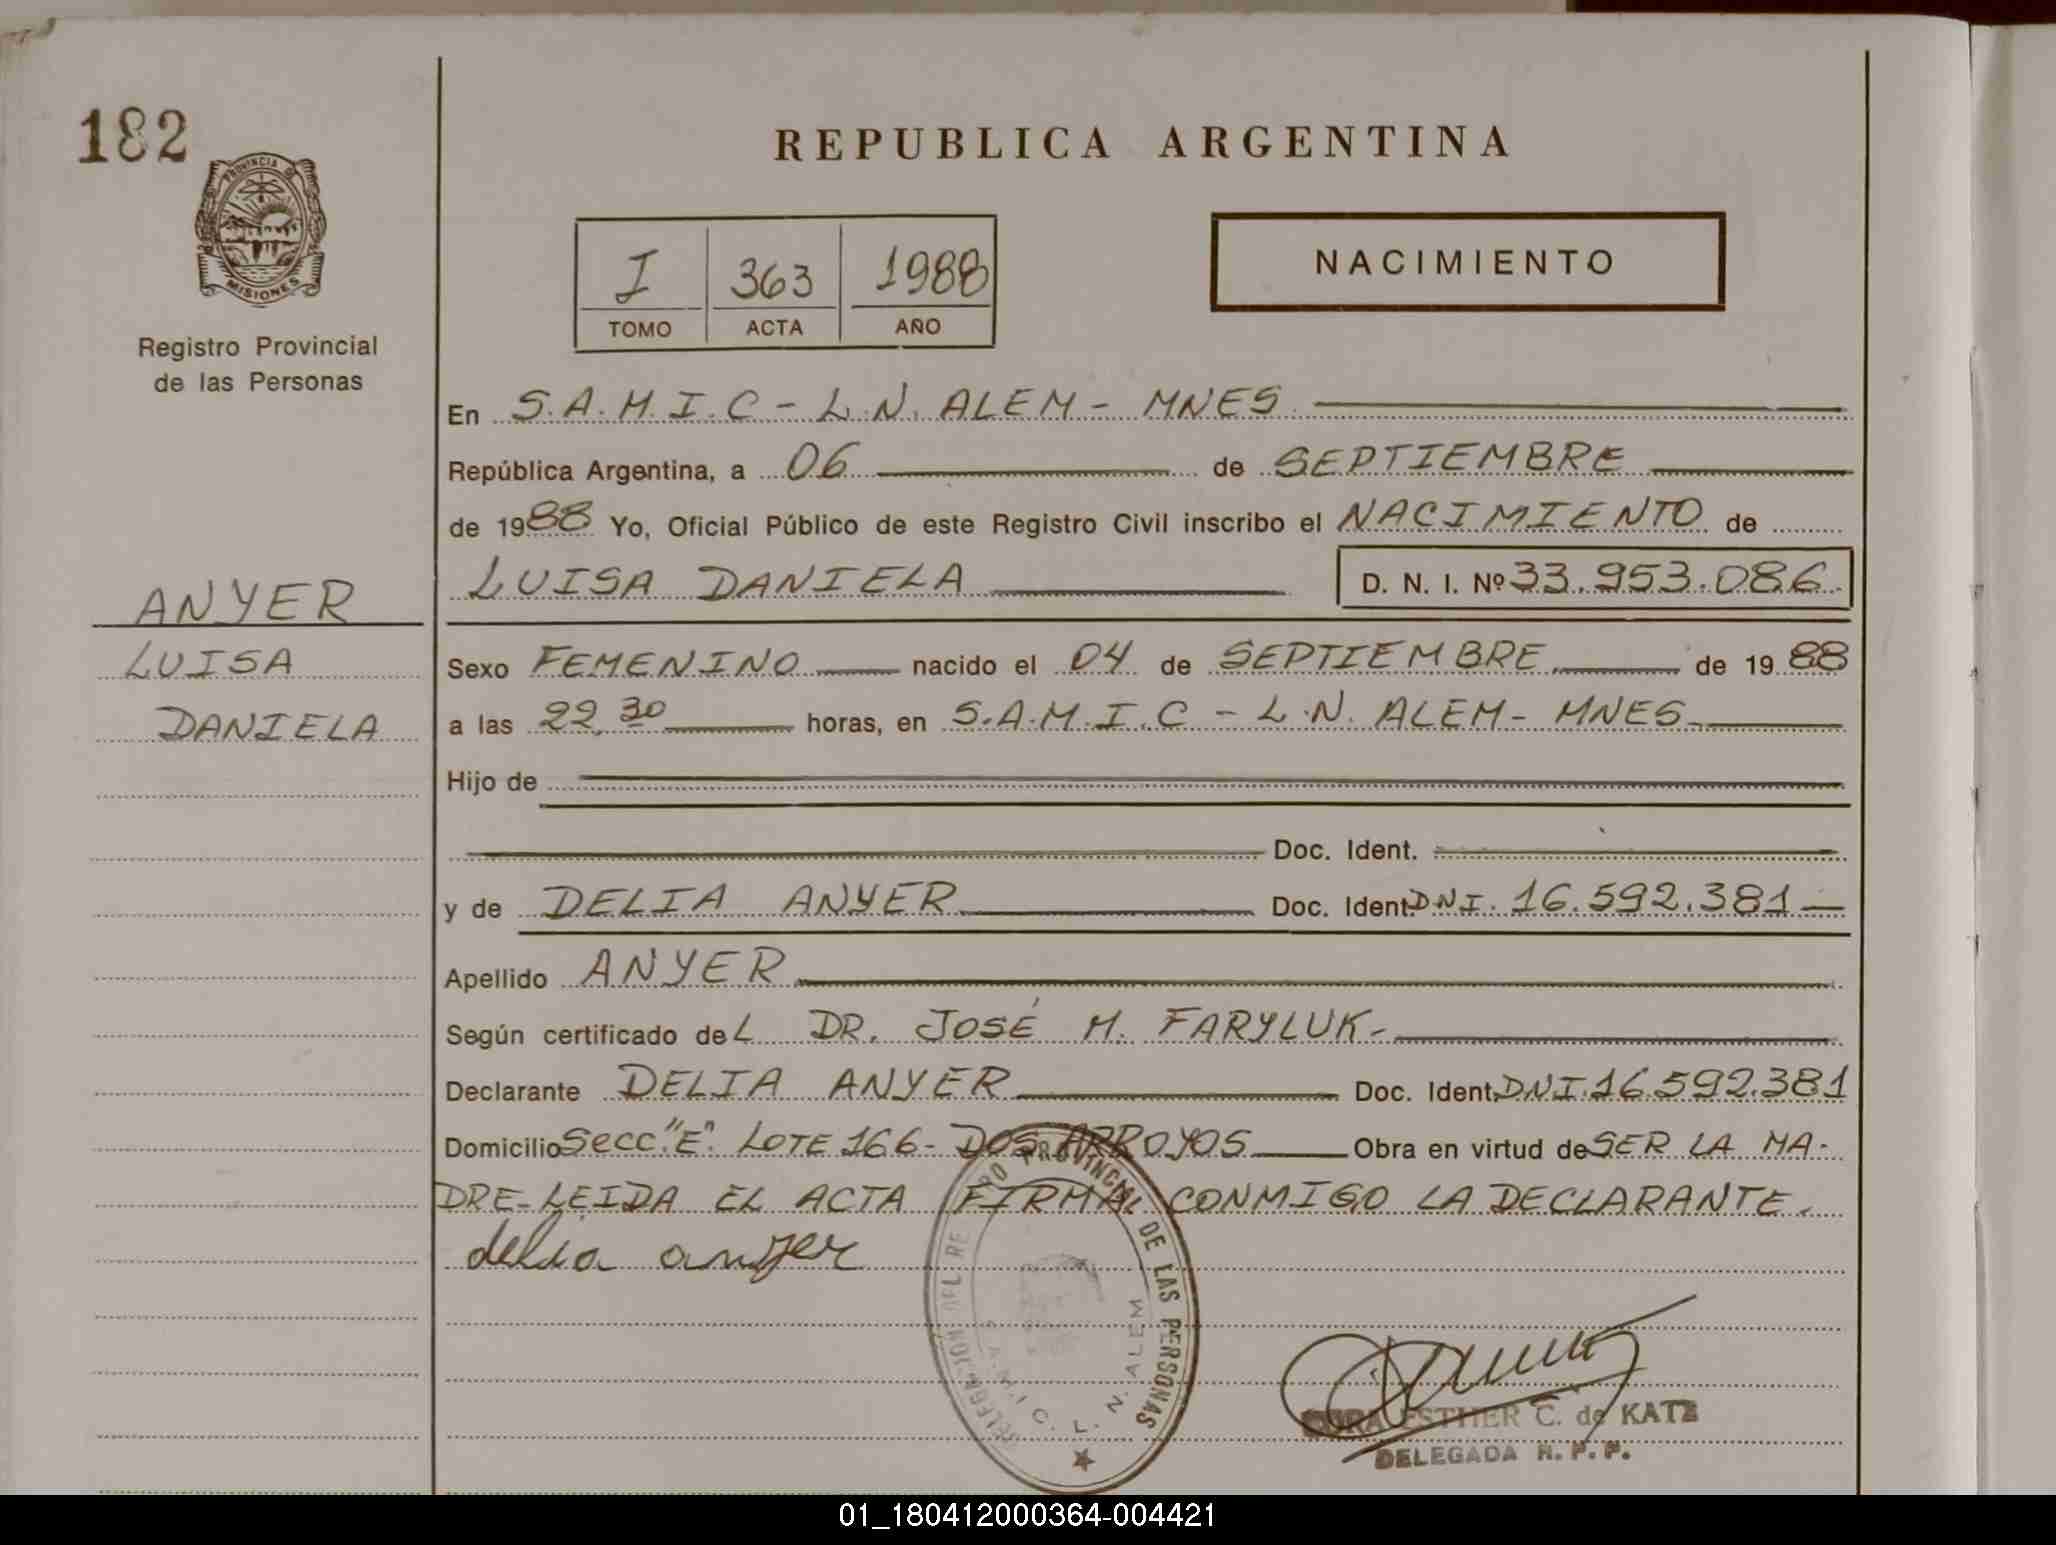 182
REPUBLICA ARGENTINA
PROVINCIA DE
MISIONES
Registro Provincial
de las Personas
I 363 1988
TOMO ACTA AÑO
NACIMIENTO
En S.A.M.I.C - L.N. ALEM - MNES
República Argentina, a 06 de SEPTIEMBRE
de 1988 Yo, Oficial Público de este Registro Civil inscribo el NACIMIENTO de
LUISA DANIELA D. N. I. Nº 33.953.086.
ANYER
LUISA
DANIELA
Sexo FEMENINO nacido el 04 de SEPTIEMBRE de 1988
a las 22,30 horas, en S.A.M.I.C - L.N. ALEM - MNES
Hijo de
Doc. Ident.
y de DELIA ANYER Doc. Ident. DNI. 16.592.381
Apellido ANYER
Según certificado deL DR. JOSÉ M. FARYLUK-
Declarante DELIA ANYER Doc. Ident. DNI. 16.592.381
Domicilio Secc. "E". LOTE 166 - DOS ARROYOS Obra en virtud de SER LA MA-
DRE-LEIDA EL ACTA FIRMA CONMIGO LA DECLARANTE.
delia anyer
PROVINCIAL DE LAS PERSONAS
S.A.M.I.C. L. N. ALEM
ESTHER C. de KATZ
DELEGADA R. P. P.
01_180412000364-004421